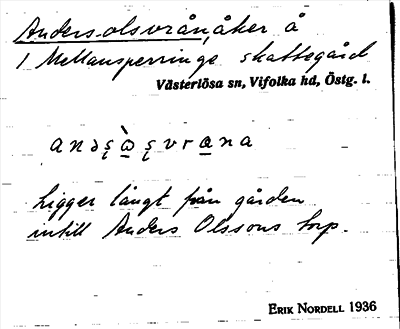 Anders-olsvrån, åker å
1 Mellansperringe skattegård
Västerlösa sn, Vifolka hd, Östg. l.
Ligger långt från gården
intill Anders Olssons torp.
ERIK NORDELL 1936